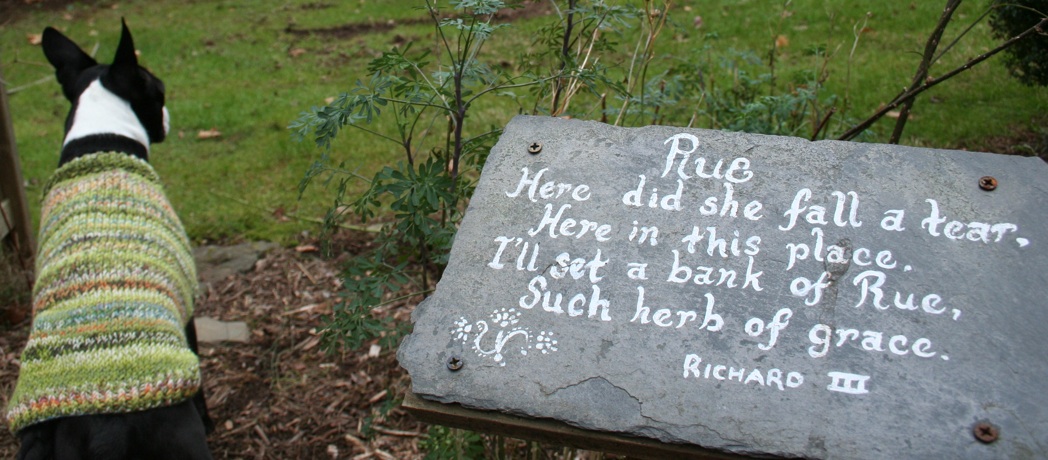 Rue
Here did she fall a tear,
Here in this place.
I'll set a bank of Rue,
Such herb of grace.
RICHARD III